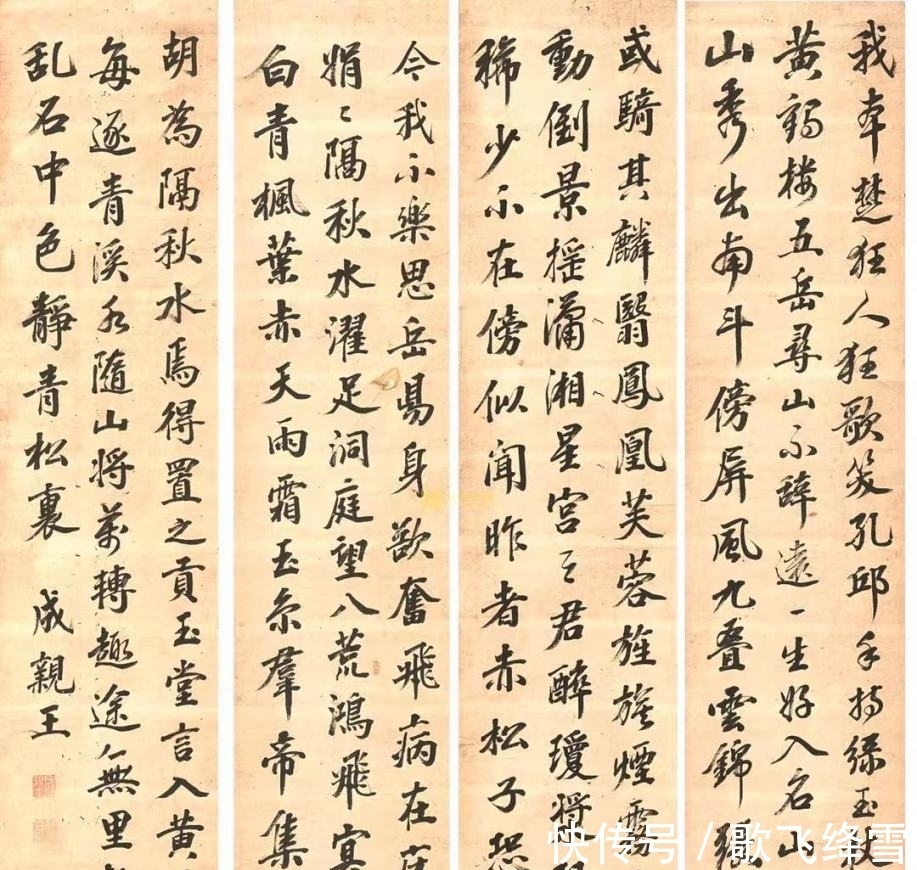 我本楚狂人狂歌笑孔邱手持綠玉杖
黄鶴楼五岳尋山不辭遠一生好入名山
山秀出南斗傍屏風九疊雲錦張
或騎其麟翳鳳凰芙蓉旌旗煙霧
動倒景搖瀟湘星宮之君醉瓊將
稀少不在傍似聞昨者赤松子恐
今我不樂思岳昜身欲奮飛病在床
娟〻隔秋水濯足洞庭望八荒鴻飛冥
白青楓葉赤天雨霜玉京羣帝集
胡為隔秋水焉得置之貢玉堂言入黄
每逐青溪水隨山將萬轉趣途無里
乱石中色靜青松裏 成親王
快传号 / 歌飞绛雪